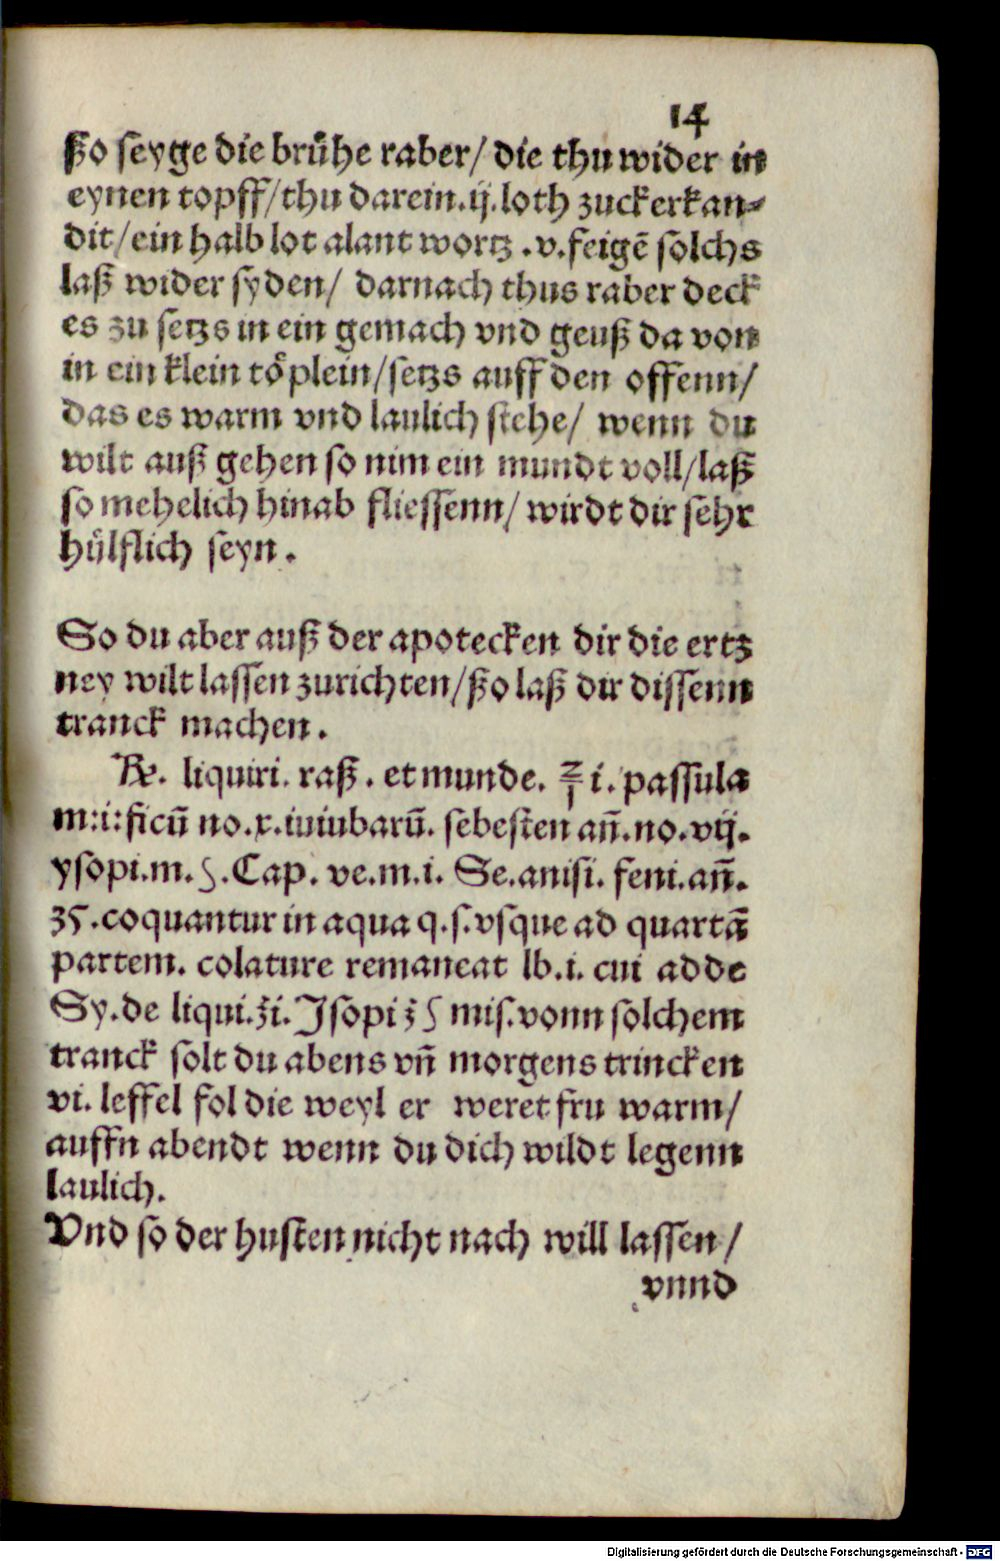 14
ßo seyge die bruͤhe raber/ die thu wider in
eynen topff/thu darein.ij.loth zuckerkan-
dit/ein halb lot alant wortz .v.feigē solchs
laß wider syden/ darnach thus raber deck
es zu setzs in ein gemach vnd geuß da von
in ein klein toͤplein/setzs auff den offenn/
das es warm vnd laulich stehe/ wenn du
wilt auß gehen so nim ein mundt voll/laß
so mehelich hinab fliessenn/ wirdt dir sehr
huͤlflich seyn.
So du aber auß der apotecken dir die ertz
ney wilt lassen zurichten/ßo laß dir dissenn
tranck machen.
℞. liquiri. raß. et munde. ℥ i. passula
m:i:ficū no.x.iuiubarū. sebesten añ.no.vij.
ysopi.m.ʃ.Cap. ve.m.i. Se.anisi. feni.añ.
ʒʃ.coquantur in aqua q.s.vsque ad quartā
partem. colature remaneat lb.i. cui adde
Sy.de liqui.℥i.Jsopi ℥ ʃ mis.vonn solchem
tranck solt du abens vñ morgens trincken
vi. leffel fol die weyl er weret fru warm/
auffn abendt wenn du dich wildt legenn
laulich.
Vnd so der husten nicht nach will lassen/
vnnd
Digitalisierung gefördert durch die Deutsche Forschungsgemeinschaft - DFG